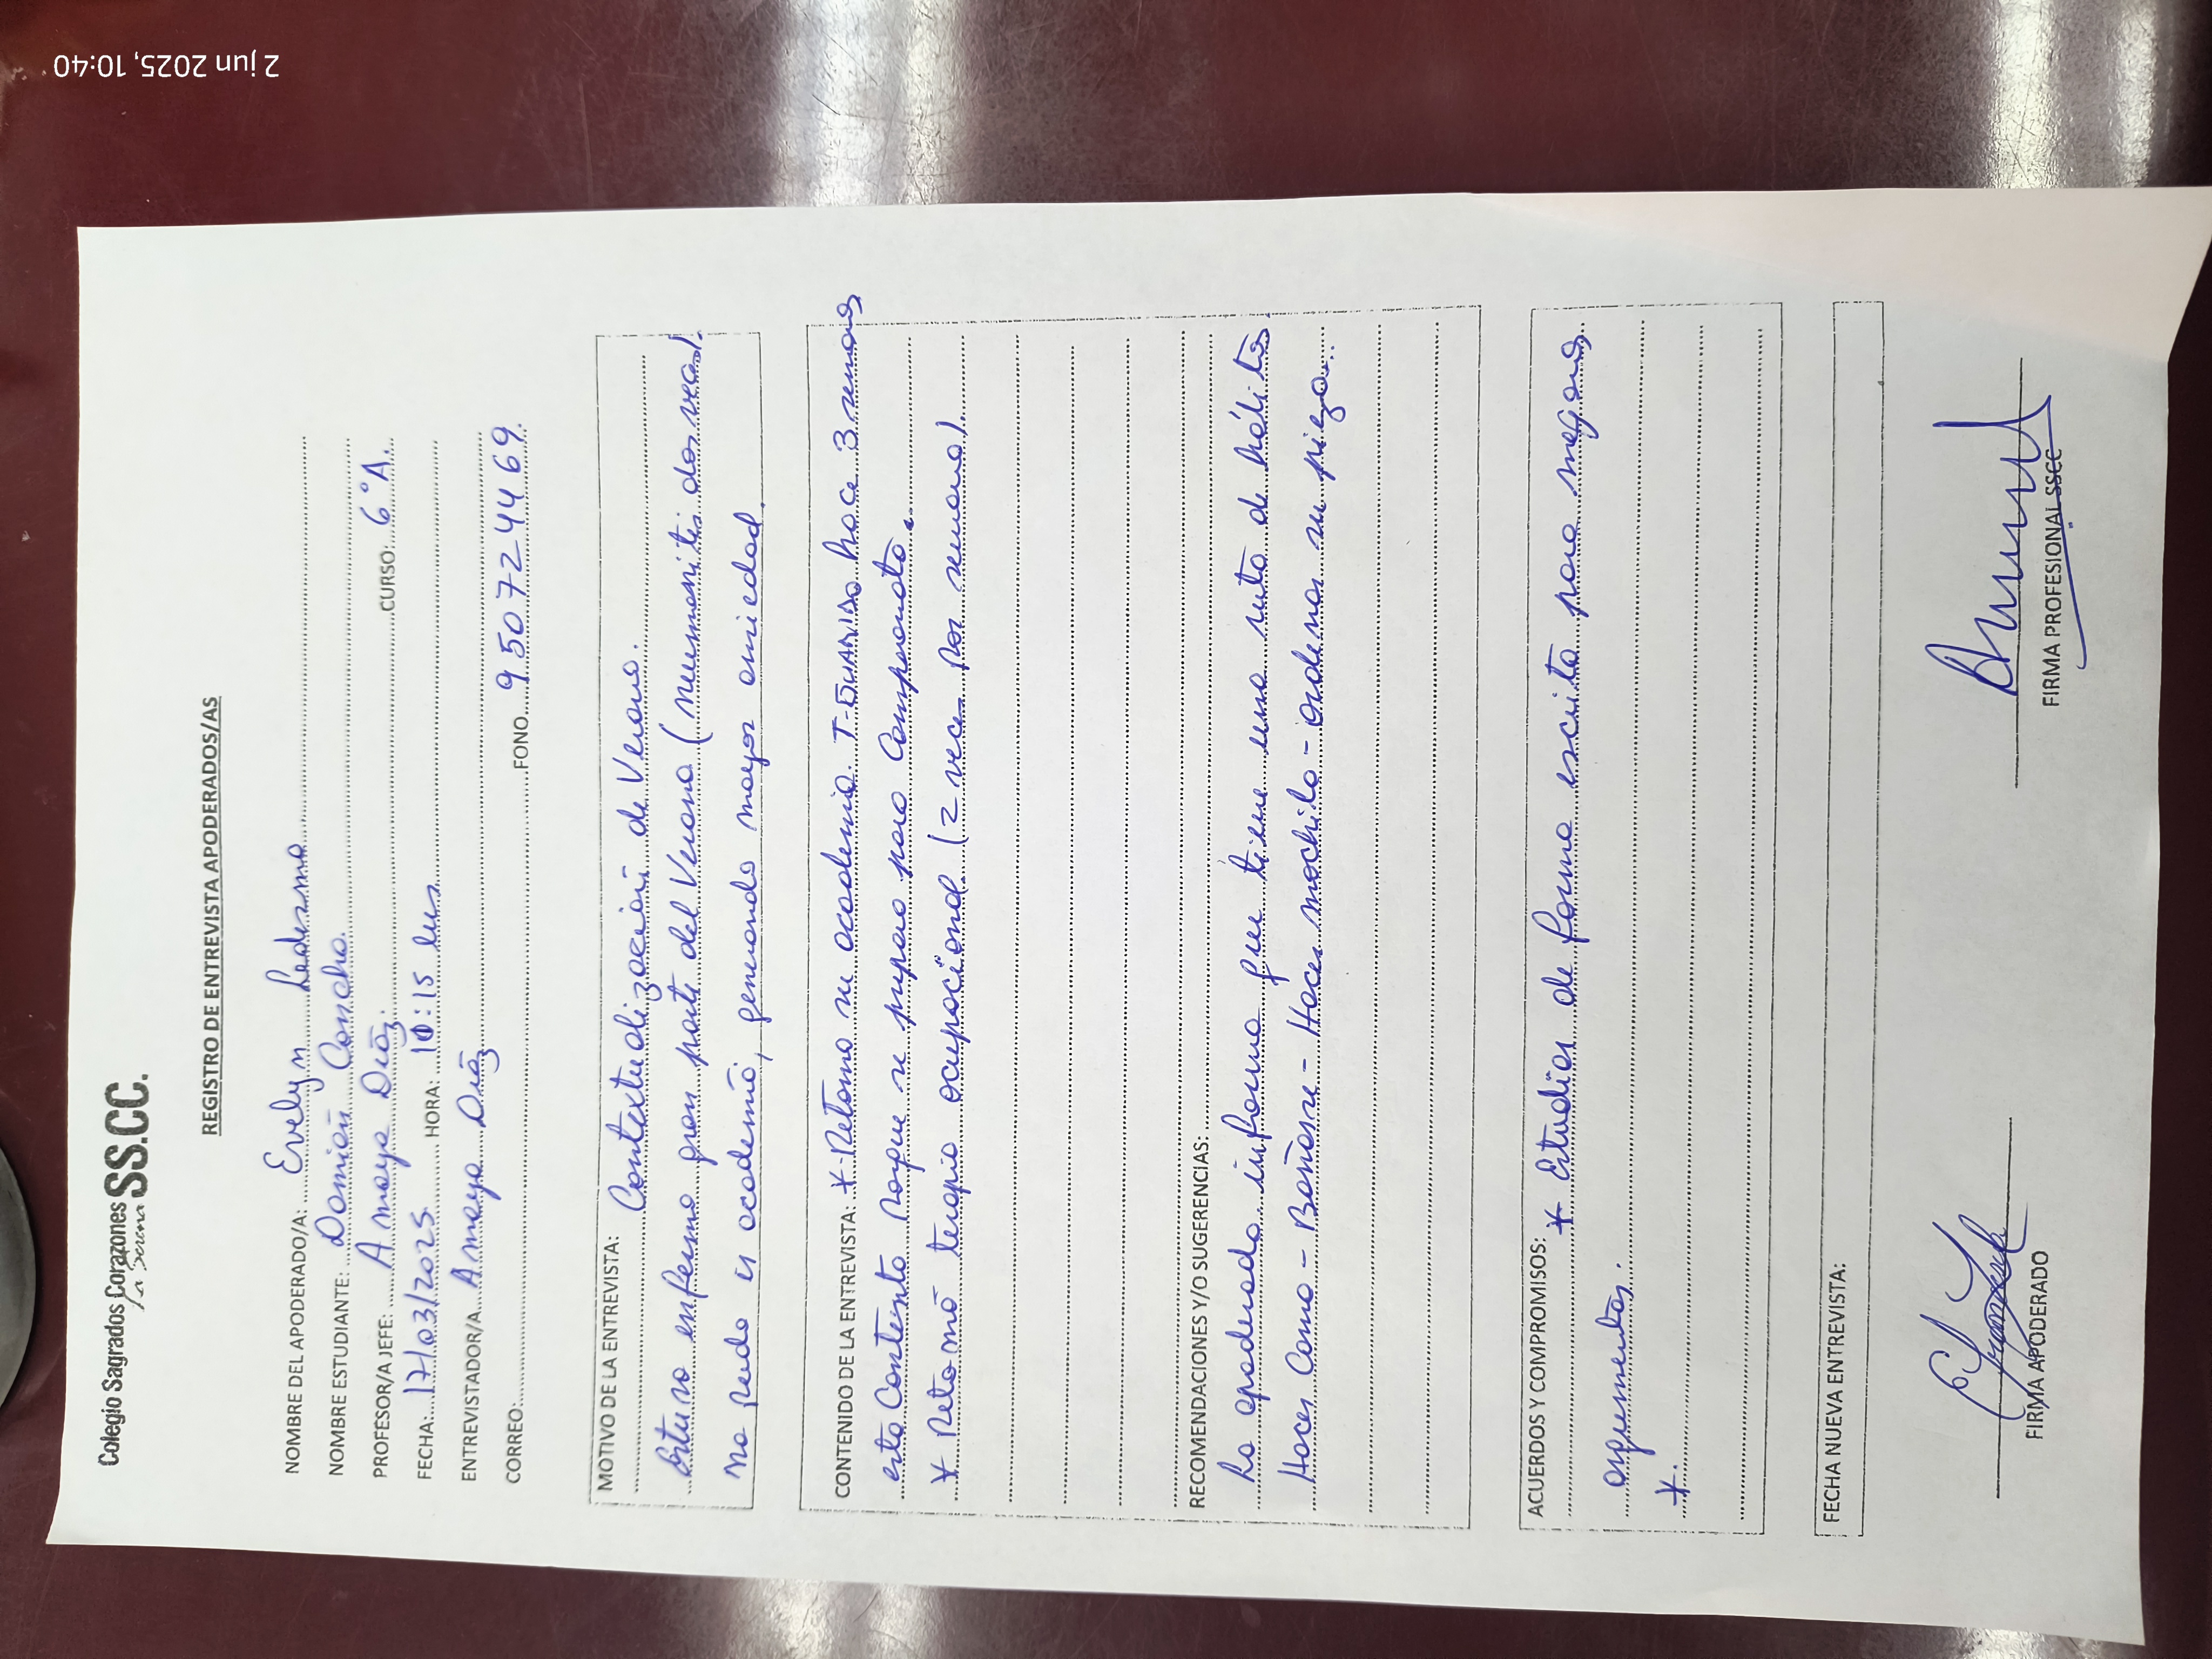 Colegio Sagrados Corazones SS.CC.
La Serena
REGISTRO DE ENTREVISTA APODERADOS/AS
NOMBRE DEL APODERADO/A: Evelyn Ledesma
NOMBRE ESTUDIANTE: Damián Concha.
PROFESOR/A JEFE: Amaya Díaz. CURSO: 6°A.
FECHA: 17/03/2025 HORA: 10:15 hrs
ENTREVISTADOR/A Amaya Díaz
CORREO: FONO 950724469.
MOTIVO DE LA ENTREVISTA: Contextualización de Verano.
Estuvo enfermo gran parte del Verano (neumonitis dos veces).
No pudo ir academia, generando mayor ansiedad.
CONTENIDO DE LA ENTREVISTA: * Retomo su academia. hace 3 semanas
esta Contento porque se preparo para Campeonato.
* Retomó terapia ocupacional (2 veces por semana).
RECOMENDACIONES Y/O SUGERENCIAS:
La apoderada informa que tiene una ruta de hábitos
Hacer Cama - Bañarse - Hacer mochila - Ordenar su pieza.
ACUERDOS Y COMPROMISOS: * Estudiar de forma escrita para mejorar
argumentos.
*.
FECHA NUEVA ENTREVISTA:
FIRMA APODERADO
FIRMA PROFESIONAL SSCC
2 jun 2025, 10:40